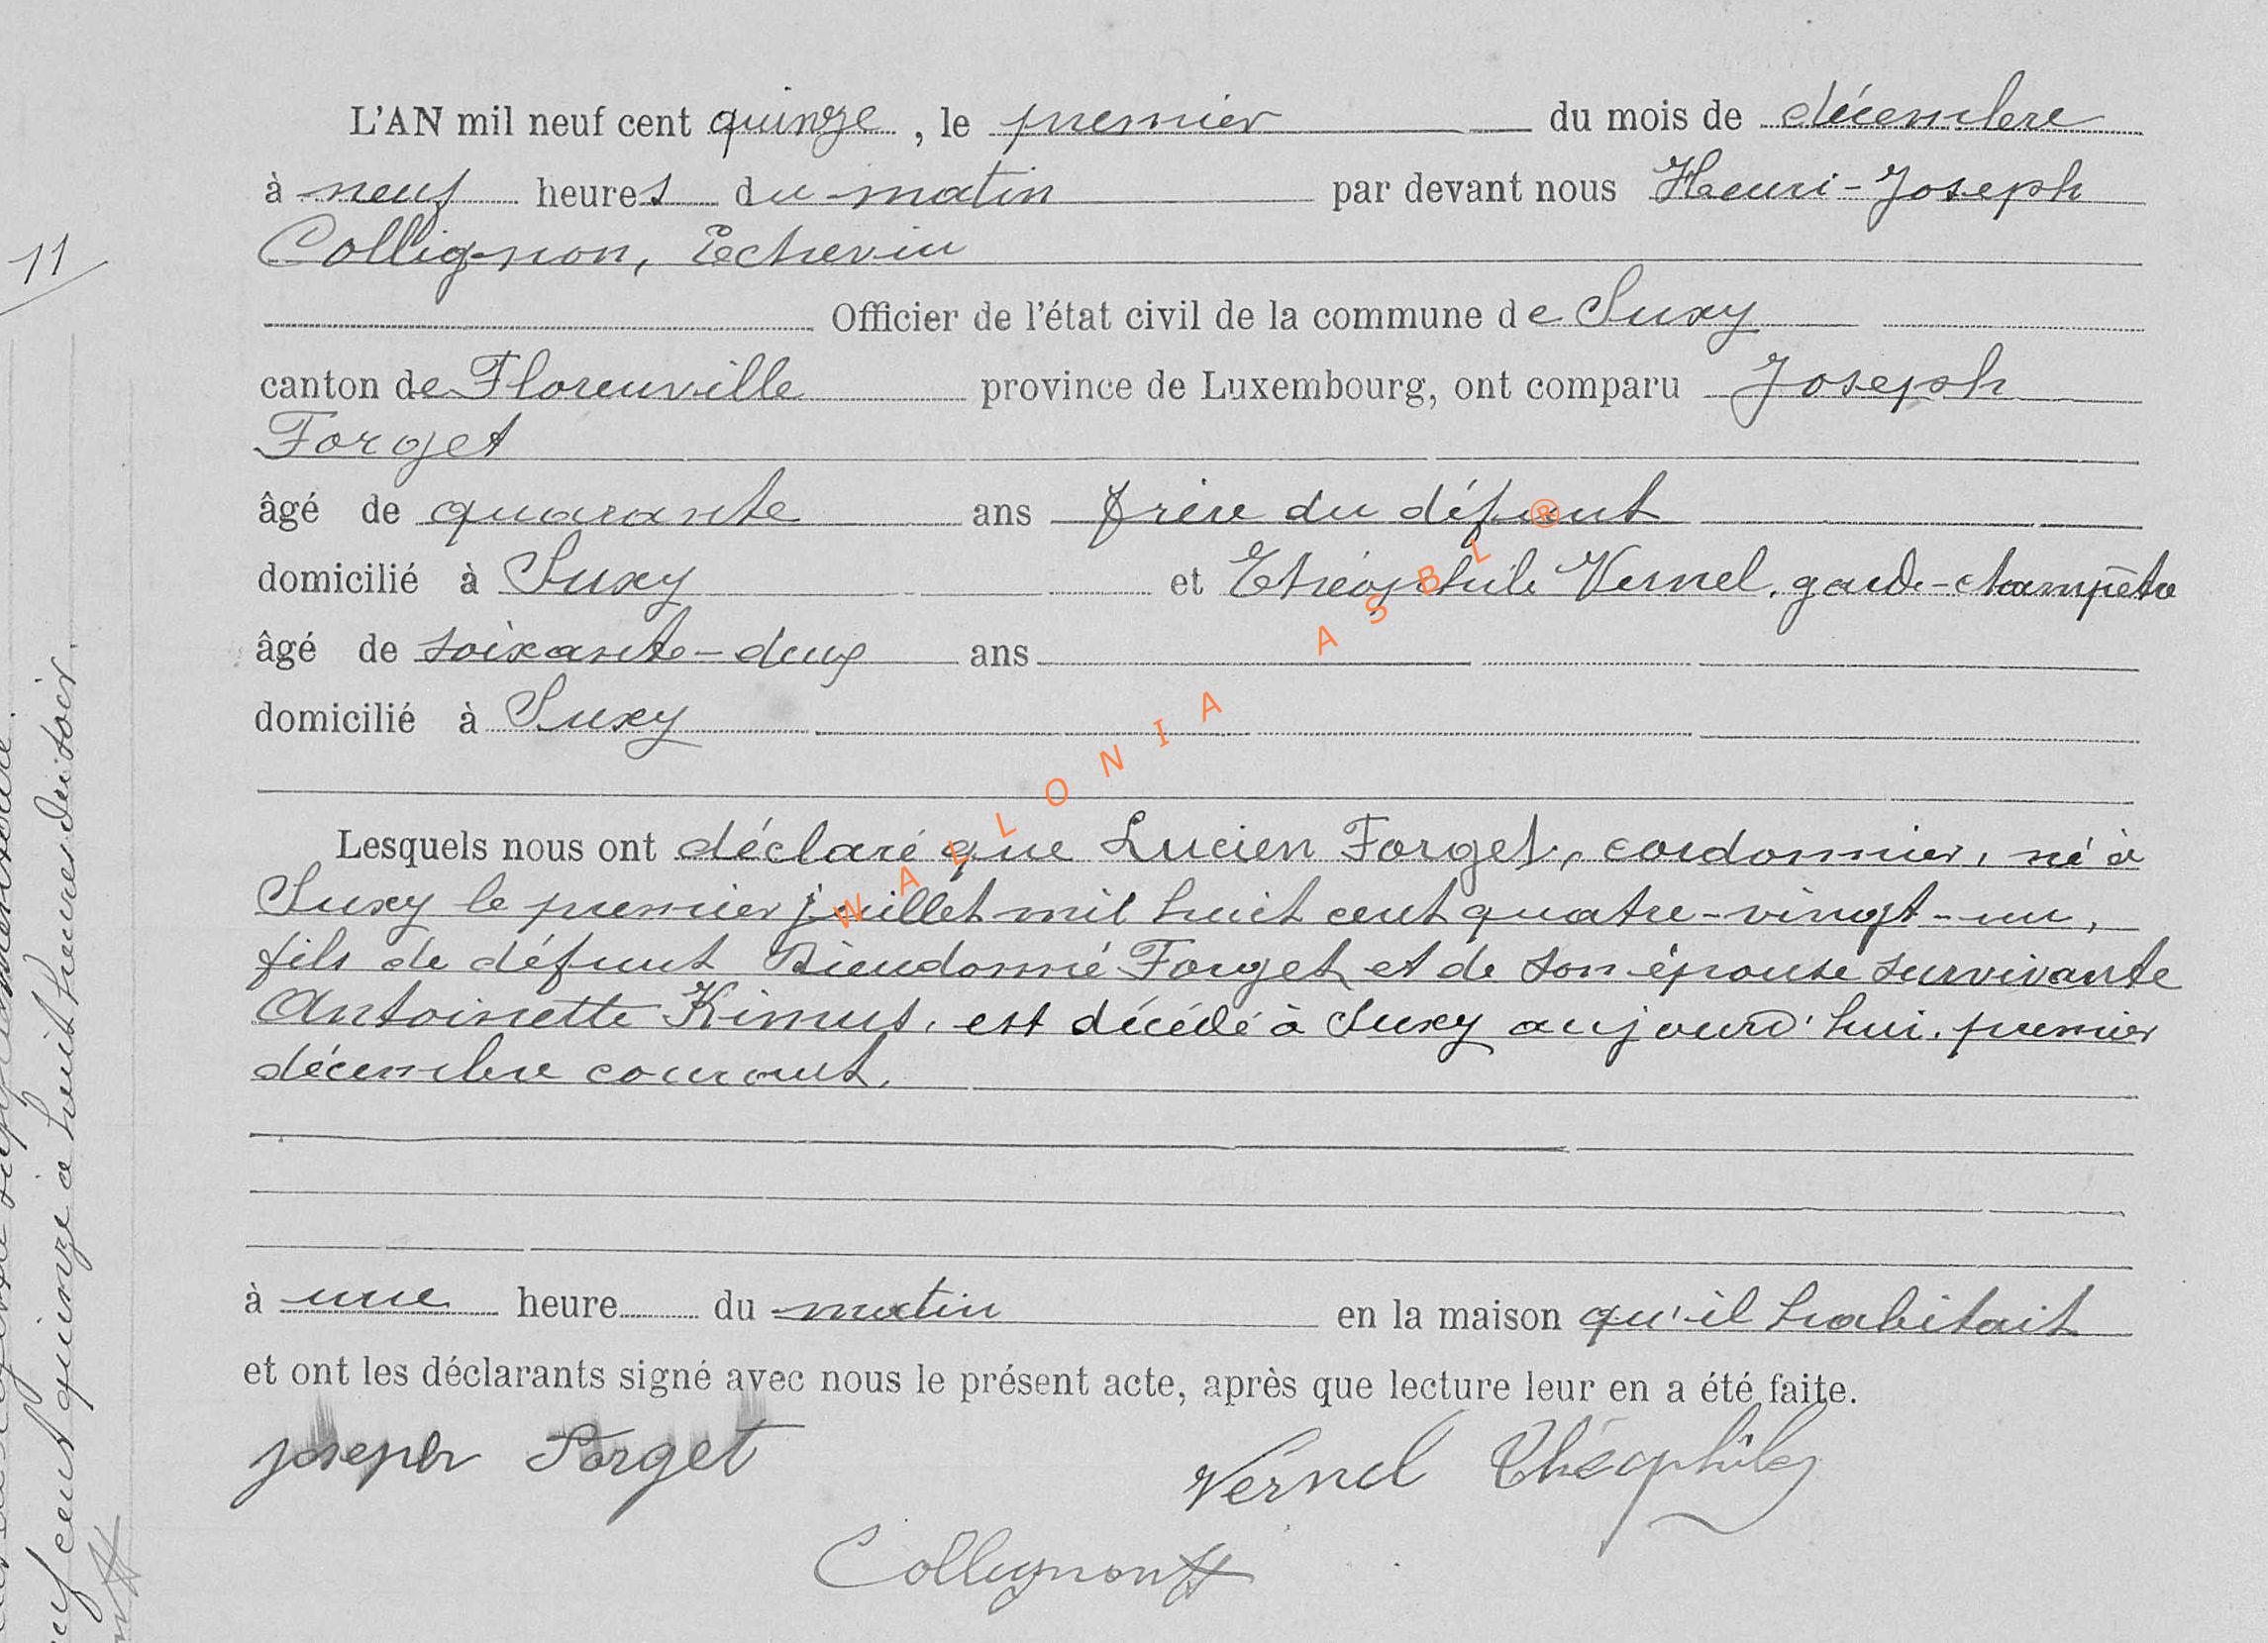 11
L'AN mil neuf cent quinze, le premier du mois de décembre
à neuf heures du matin par devant nous Henri-Joseph
Collignon, Echevin
Officier de l'état civil de la commune de Suxy
canton de Florenville province de Luxembourg, ont comparu Joseph
Forget
âgé de quarante ans frère du défunt
domicilié à Suxy et Théophile Vernel, garde-champêtre
âgé de soixante-deux ans
domicilié à Suxy
Lesquels nous ont déclaré que Lucien Forget, cordonnier, né à
Suxy le premier juillet mil huit cent quatre-vingt-un,
fils de défunt Dieudonné Forget et de son épouse survivante
Antoinette Kimus, est décédé à Suxy aujourd'hui, premier
décembre courant.
à une heure du matin en la maison qu'il habitait
et ont les déclarants signé avec nous le présent acte, après que lecture leur en a été faite.
Joseph Forget
Vernel Théophile
Collignon H
cent quinze à huit heures du soir.
WALLONIA ASBL ®